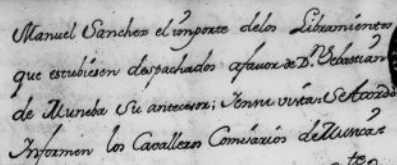 Manuel Sanchez el importe delos Libramientos
que estubiesen despachados afauor de Dn. Sebastian
de Muneba su antecesor; Yenvi vista: Se Acordò
Informen los Caualleros Comisarios de